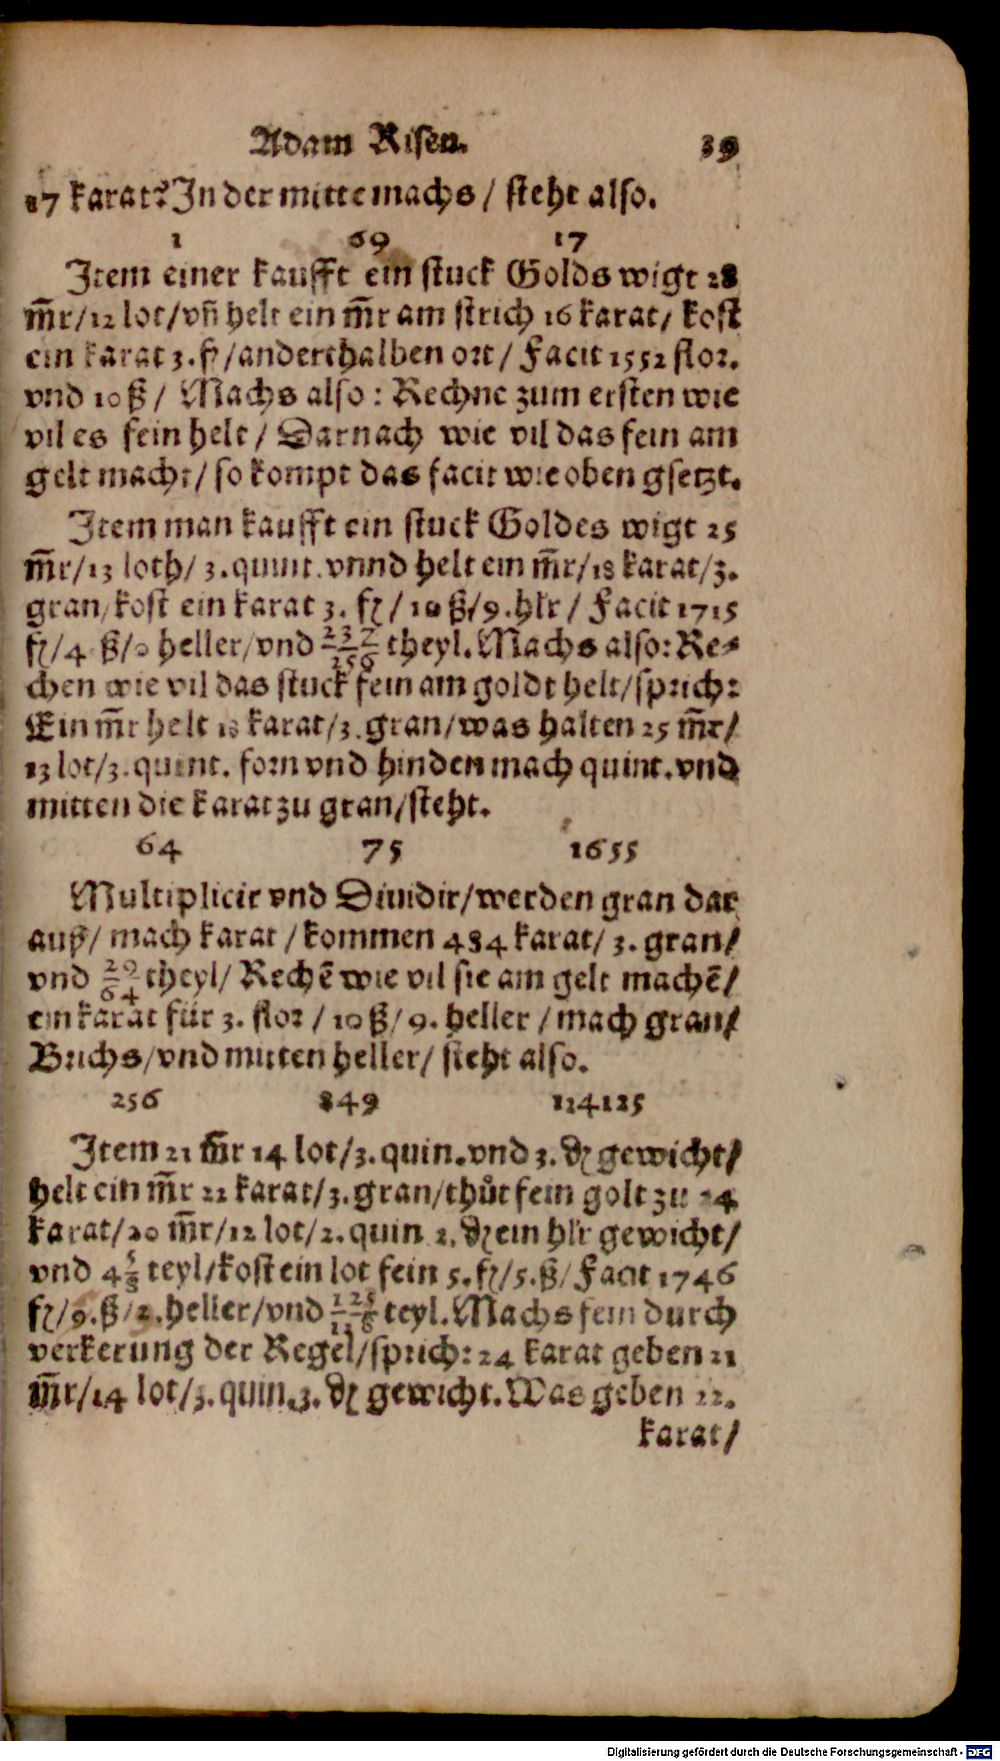 Adam Risen. 39
17 karat? In der mitte machs / steht also.
1 69 17
Item einer kaufft ein stuck Golds wigt 28
m̃r/12 lot/vñ helt ein m̃r am strich 16 karat/ kost
ein karat 3. fl/anderthalben ort/ Facit 1552 flor.
vnd 10 ß/ Machs also: Rechne zum ersten wie
vil es fein helt/ Darnach wie vil das fein am
gelt macht/ so kompt das facit wie oben gsetzt.
Item man kaufft ein stuck Goldes wigt 25
m̃r/13 loth/3.quint.vnnd helt ein m̃r/18 karat/3.
gran/kost ein karat 3. fl/10 ß/9.hlr/ Facit 1715
fl/4 ß/0 heller/vnd 237/256 theyl. Machs also: Re-
chen wie vil das stuck fein am goldt helt/sprich:
Ein m̃r helt 18 karat/3.gran/was halten 25 m̃r/
13 lot/3.quint. forn vnd hinden mach quint.vnd
mitten die karat zu gran/steht.
64 75 1655
Multiplicir vnd Diuidir/werden gran dar
auß/ mach karat/kommen 484 karat/ 3. gran/
vnd 29/64 theyl/ Rechẽ wie vil sie am gelt machẽ/
ein karat für 3. flor/10 ß/9. heller/mach gran/
Brichs/vnd mitten heller/ steht also.
256 849 124125
Item 21 m̃r 14 lot/3.quin.vnd 3. ₰ gewicht/
helt ein m̃r 22 karat/3.gran/thůt fein golt zu 24
karat/20 m̃r/12 lot/2.quin 2. ₰ ein hlr gewicht/
vnd 4 5/8 teyl/kost ein lot fein 5.fl/5.ß/Facit 1746
fl/9.ß/2.heller/vnd teyl. Machs fein durch
verkerung der Regel/sprich: 24 karat geben 21
m̃r/14 lot/3.quin.3. ₰ gewicht. Was geben 22.
karat/
Digitalisierung gefördert durch die Deutsche Forschungsgemeinschaft - DFG